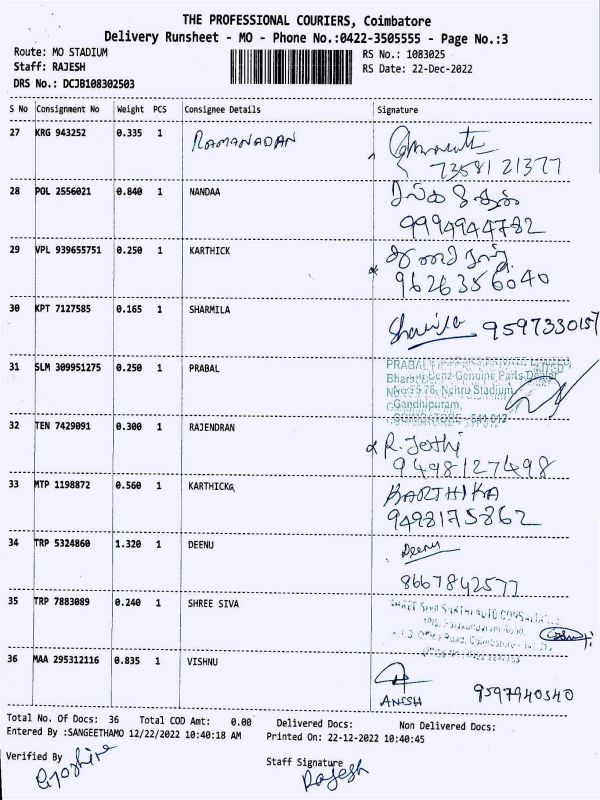 THE PROFESSIONAL COURIERS, Coimbatore
Delivery Runsheet - MO - Phone No.:0422-3505555 - Page No.:3
Route: MO STADIUM RS No.: 1083025
Staff: RAJESH RS Date: 22-Dec-2022
DRS No.: DCJB108302503
S No Consignment No Weight PCS Consignee Details Signature
27 KRG 943252 0.335 1 RAMANADAN
73581 21377
28 POL 2556021 0.840 1 NANDAA
9994944782
29 VPL 939655751 0.250 1 KARTHICK
9626356040
30 KPT 7127585 0.165 1 SHARMILA Sharmila 9597330157
31 SLM 309951275 0.250 1 PRABAL PRABAL
Bharat Benz Genuine Parts Dealer
No 75 76, Nehru Stadium,
Gandhipuram,
COIMBATORE - 641 012
32 TEN 7429091 0.300 1 RAJENDRAN R. Jothi
9498127498
33 MTP 1198872 0.560 1 KARTHICK KARTHIKA
9498175862
34 TRP 5324860 1.320 1 DEENU Deenu
8667842577
35 TRP 7883089 0.240 1 SHREE SIVA SHREE SIVA SAKTHI AUTO
36 MAA 295312116 0.835 1 VISHNU
ANISH 9597940540
Total No. Of Docs: 36 Total COD Amt: 0.00 Delivered Docs: Non Delivered Docs:
Entered By :SANGEETHAMO 12/22/2022 10:40:18 AM Printed On: 22-12-2022 10:40:45
Verified By Staff Signature
Rajesh